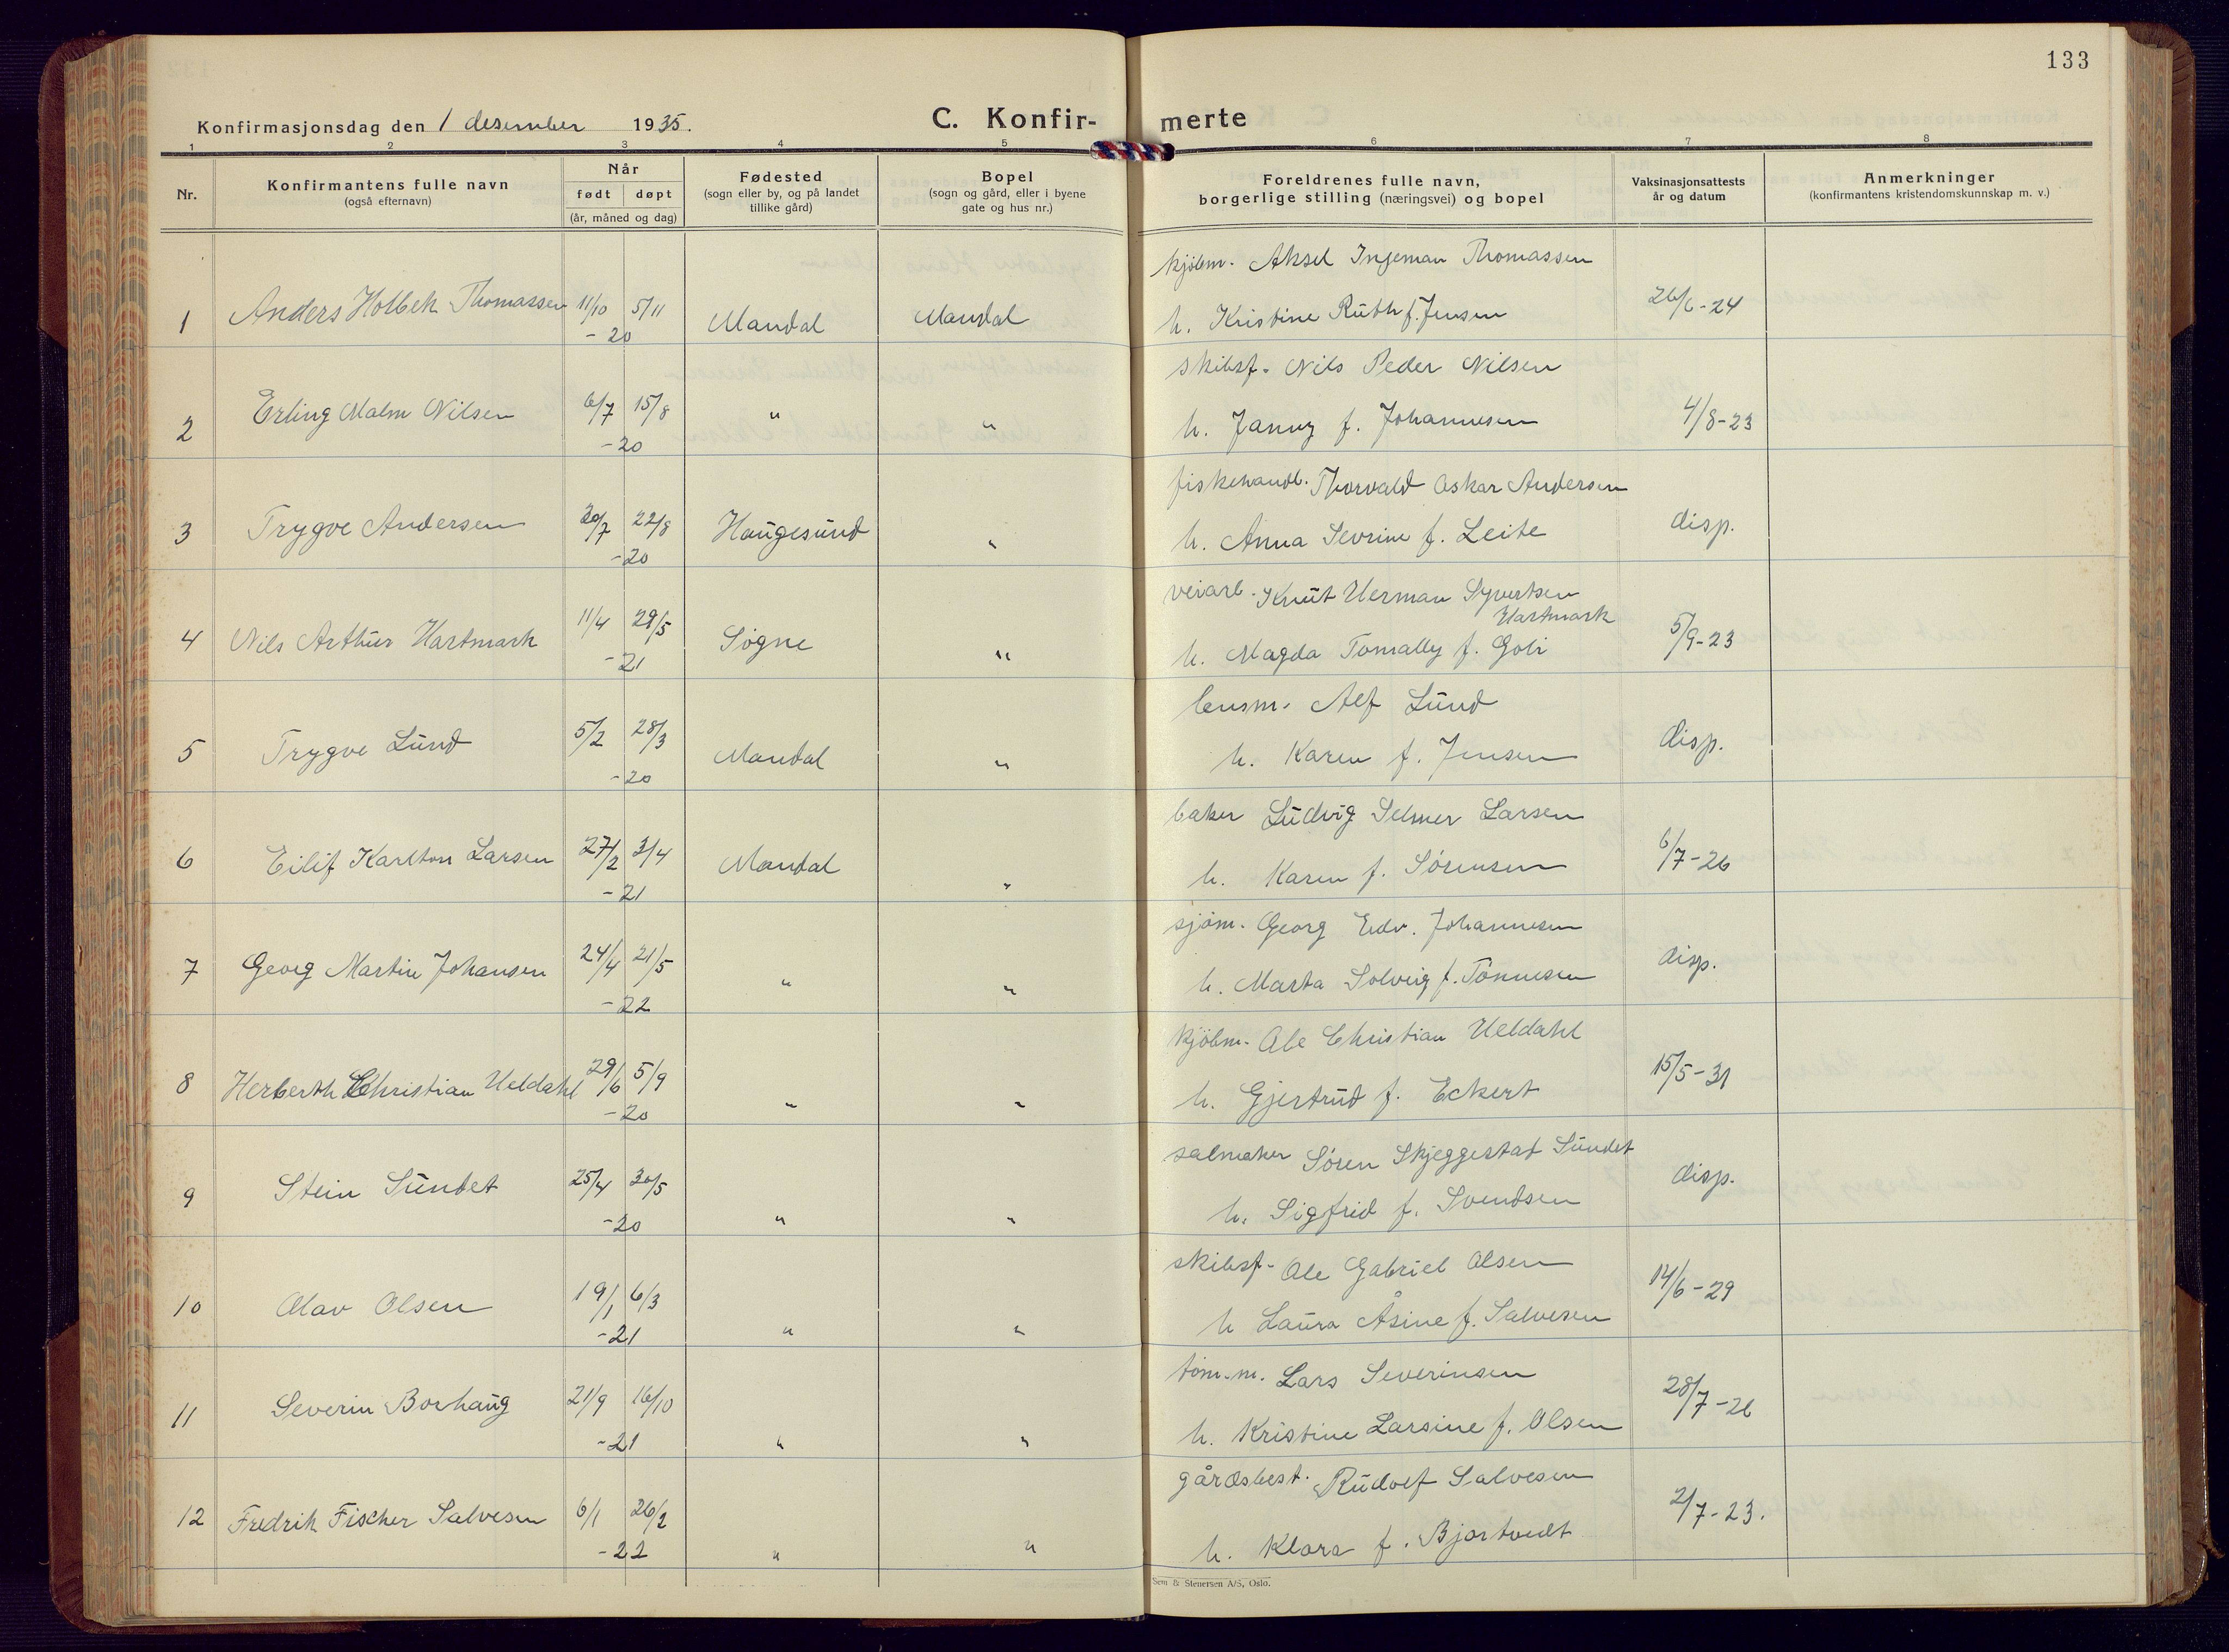 133
Konfirmasjonsdag den 1 desember 1935.
C. Konfir- merte
1 2 3 4 5 6 7 8
Nr.
Konfirmantens fulle navn
(også efternavn)
Når
født døpt
(år, måned og dag)
Fødested
(sogn eller by, og på landet
tillike gård)
Bopel
(sogn og gård, eller i byene
gate og hus nr.)
Foreldrenes fulle navn,
borgerlige stilling (næringsvei) og bopel
Vaksinasjonsattests
år og datum
Anmerkninger
(konfirmantens kristendomskunnskap m. v.)
kjöbm. Aksel Ingeman Thomassen
1 Anders Holbek Thomassen 11/10 5/11 Mandal Mandal h. Kristine Ruth f. Jensen 26/6-24
-20
skibsf. Nils Peder Nilsen
2 Erling Malm Nilsen 6/7 15/8 " " h. Janny f. Johannesen 4/8-23
-20
fiskehandl. Thorvald Oskar Andersen
3 Trygve Andersen 30/7 22/8 Haugesund " h. Anna Sevrine f. Leite disp.
-20
veiarb. Knut Herman Syvertsen
Hartmark
4 Nils Arthur Hartmark 11/4 29/5 Søgne " h. Magda Tomally f. Goli 5/9-23
-21
lensm. Alf Lund
5 Trygve Lund 5/2 28/3 Mandal " h. Karen f. Jensen disp.
-20
baker Ludvig Selmer Larsen
6 Eilif Karlton Larsen 27/2 3/4 Mandal " h. Karen f. Sørensen 6/7-26
-21
sjøm. Georg Edv. Johannesen
7 Georg Martin Johansen 24/4 21/5 " " h. Marta Solveig f. Tönnesen disp.
-22
kjöbm. Ole Christian Ueldahl
8 Herberth Christian Ueldahl 29/6 5/9 " " h. Gjertrud f. Eckert 15/5-31
-20
salmaker Sören Skjeggestad Sundet
9 Stein Sundet 25/4 30/5 " " h. Sigfrid f. Svendsen disp.
-20
skibsf. Ole Gabriel Olsen
10 Olav Olsen 19/1 6/3 " " h Laura Åsine f. Salvesen 14/6-29
-21
töm.m. Lars Severinsen
11 Severin Borhaug 21/9 16/10 " " h. Kristine Larsine f. Olsen 28/7-26
-21
gårdsbest. Rudolf Salvesen
12 Fredrik Fischer Salvesen 6/1 26/2 " " h. Klara f. Bjortvedt 2/7-23.
-22
Sem & Stenersen A/S, Oslo.